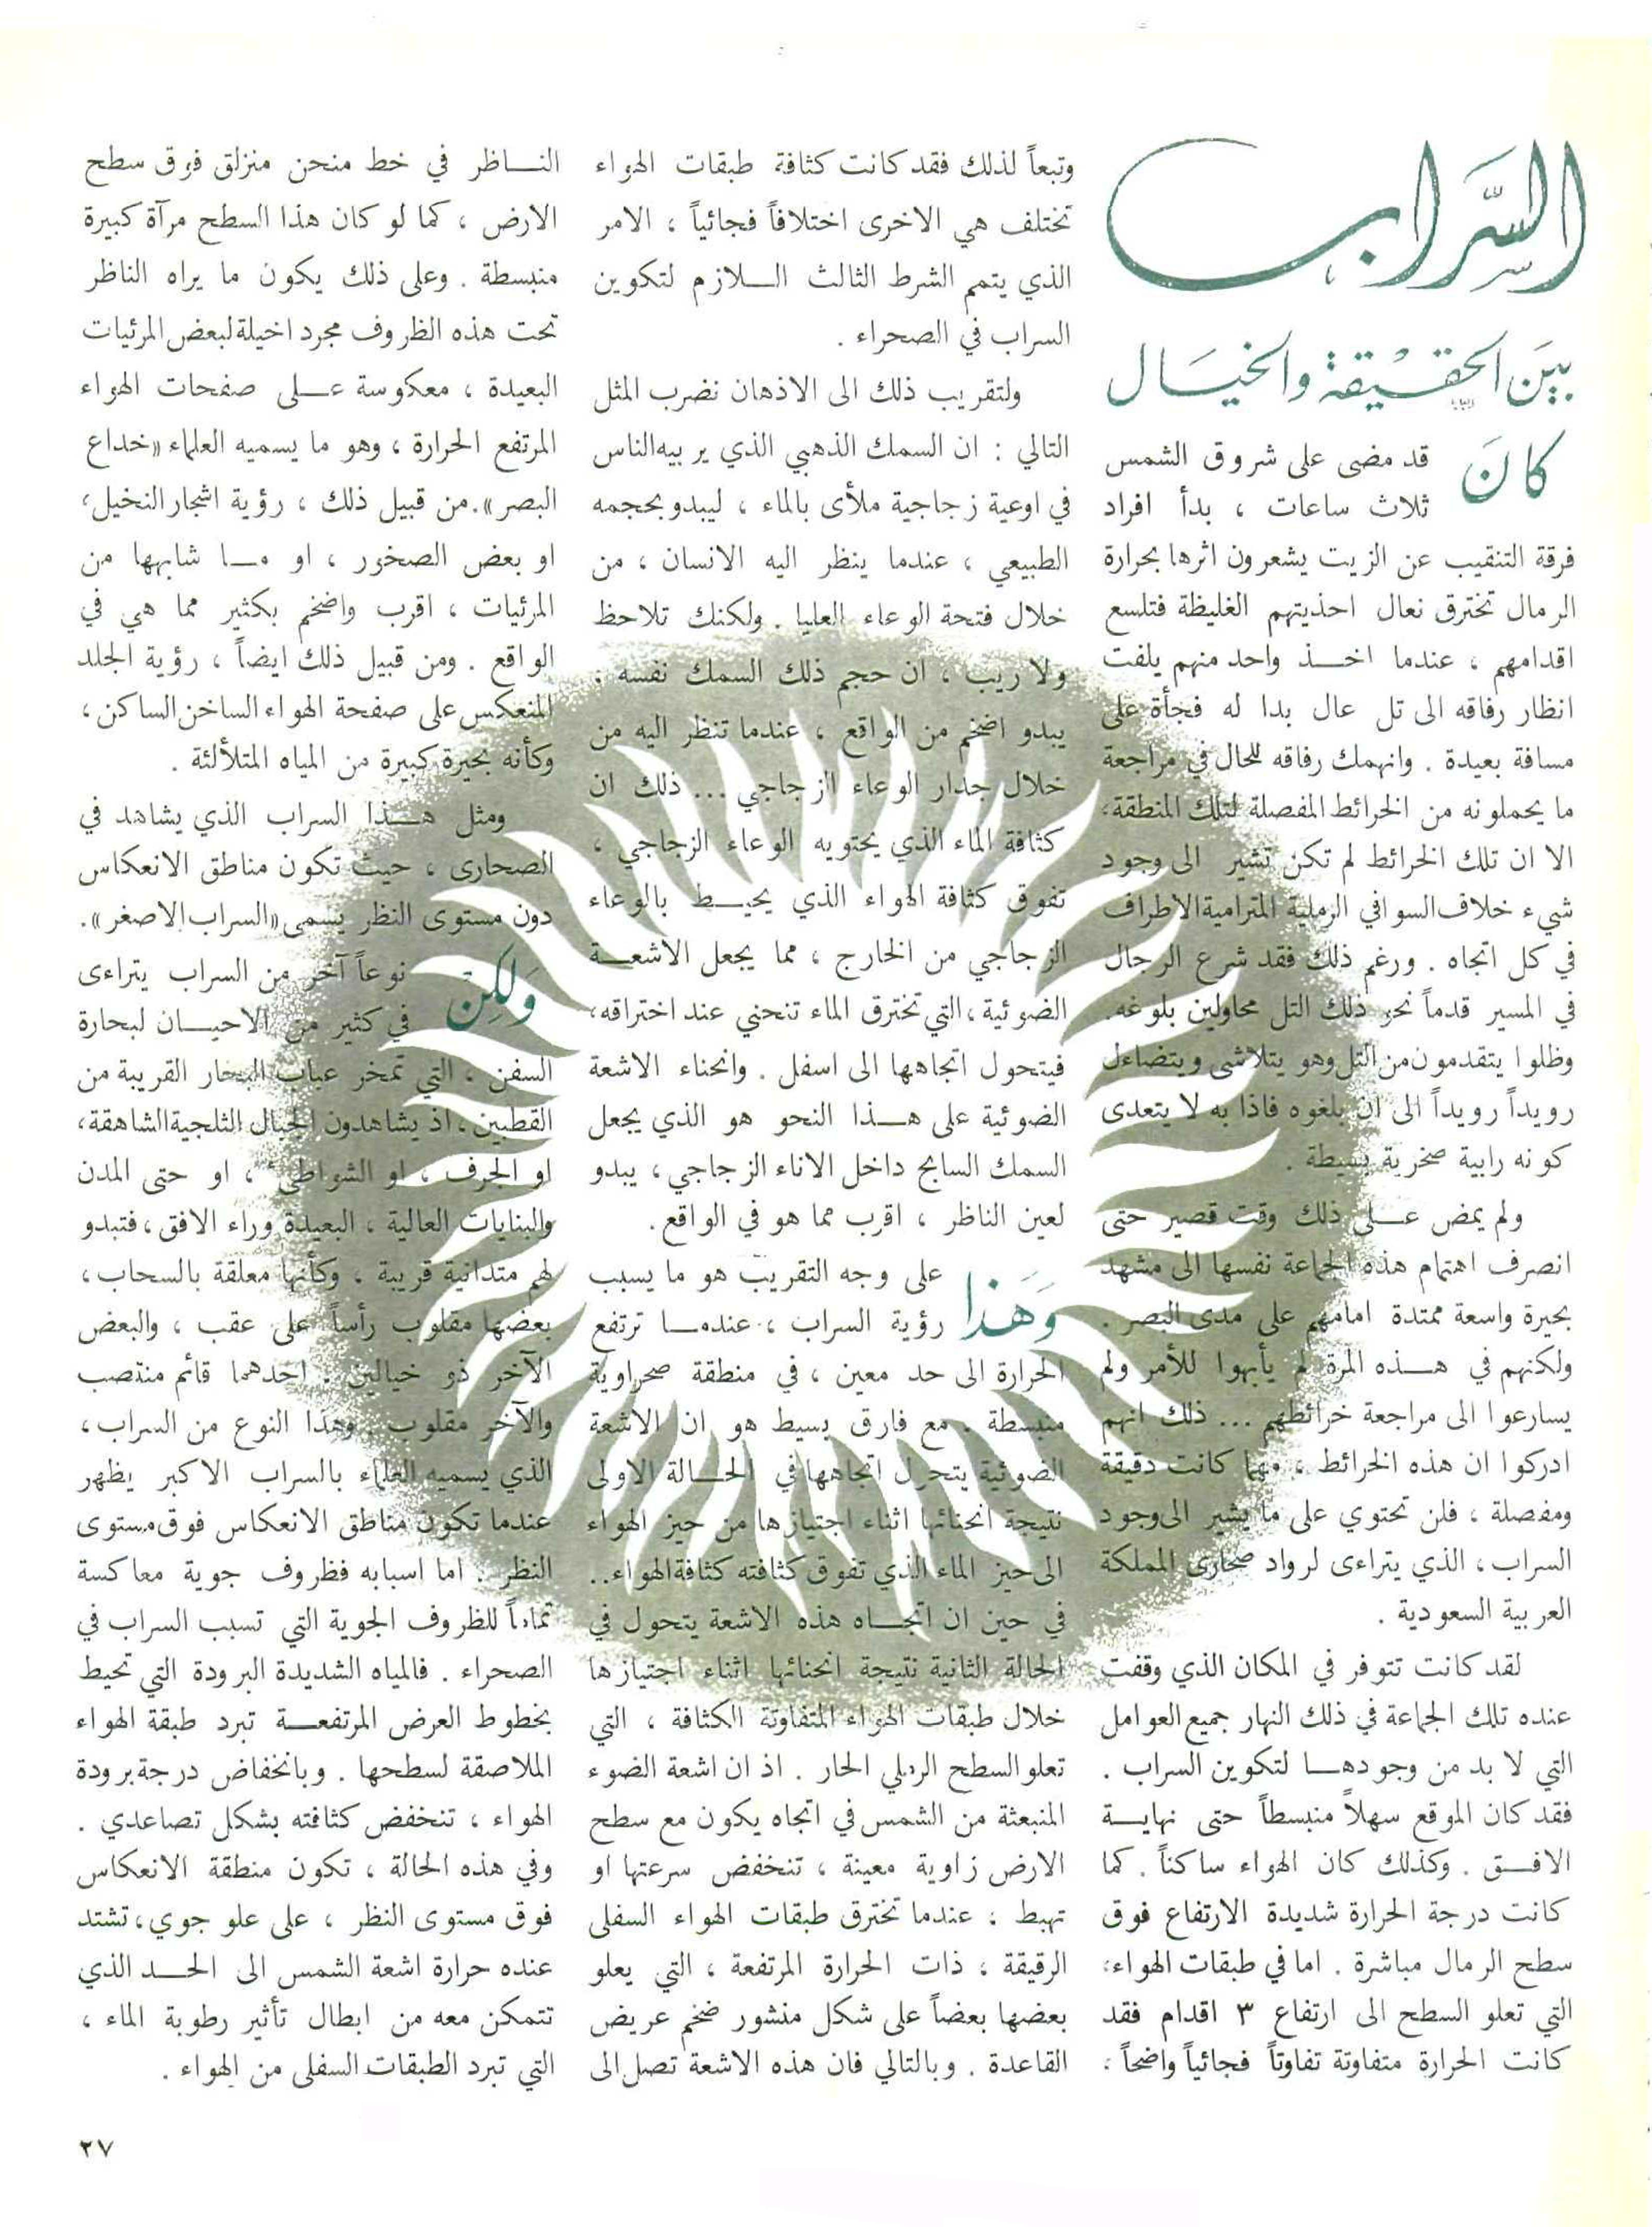 السَّراب
بَيَن الحَقيْقة والخيَال
كانَ قد مضى على شروق الشمس
ثلاث ساعات ، بدأ افراد
فرقة التنقيب عن الزيت يشعرون اثرها بحرارة
الرمال تخترق نعال احذيتهم الغليظة فتلسع
اقدامهم ، عندما اخــذ واحد منهم يلفت
انظار رفاقه الى تل عال بدا له فجأة على
مسافة بعيدة . وانهمك رفاقه للحال في مراجعة
ما يحملونه من الخرائط المفصلة لتلك المنطقة،
الا ان تلك الخرائط لم تكن تشير الى وجود
شيء خلاف السوافي الرملية المترامية الاطراف
في كل اتجاه . ورغم ذلك فقد شرع الرجال
في المسير قدماً نحو ذلك التل محاولين بلوغه.
وظلوا يتقدمون من التل وهو يتلاشى ويتضاءل
رويداً رويداً الى ان بلغوه فاذا به لا يتعدى
كونه رابية صخرية بسيطة .
ولم يمض عــلى ذلك وقت قصير حتى
انصرف اهتمام هذه الجماعة نفسها الى مشهد
بحيرة واسعة ممتدة امامهم على مدى البصر .
ولكنهم في هــذه المرة لم يأبهوا للأمر ولم
يسارعوا الى مراجعة خرائطهم ... ذلك انهم
ادركوا ان هذه الخرائط ، مهما كانت دقيقة
ومفصلة ، فلن تحتوي على ما يشير الى وجود
السراب ، الذي يتراءى لرواد صحارى المملكة
العربية السعودية .
لقد كانت تتوفر في المكان الذي وقفت
عنده تلك الجماعة في ذلك النهار جميع العوامل
التي لا بد من وجودهــا لتكوين السراب .
فقد كان الموقع سهلاً منبسطاً حتى نهايــة
الافــق . وكذلك كان الهواء ساكناً . كما
كانت درجة الحرارة شديدة الارتفاع فوق
سطح الرمال مباشرة . اما في طبقات الهواء،
التي تعلو السطح الى ارتفاع ٣ اقدام فقد
كانت الحرارة متفاوتة تفاوتاً فجائياً واضحاً ،
وتبعاً لذلك فقد كانت كثافة طبقات الهواء
تختلف هي الاخرى اختلافاً فجائياً ، الامر
الذي يتمم الشرط الثالث الــلازم لتكوين
السراب في الصحراء .
ولتقريب ذلك الى الاذهان نضرب المثل
التالي : ان السمك الذهبي الذي يربيه الناس
في اوعية زجاجية ملأى بالماء ، ليبدو بحجمه
الطبيعي ، عندما ينظر اليه الانسان ، من
خلال فتحة الوعاء العليا . ولكنك تلاحظ
ولا ريب ، ان حجم ذلك السمك نفسه ،
يبدو اضخم من الواقع ، عندما تنظر اليه من
خلال جدار الوعاء الزجاجي ... ذلك ان
كثافة الماء الذي يحتويه الوعاء الزجاجي ،
تفوق كثافة الهواء الذي يحيــط بالوعاء
الزجاجي من الخارج ، مما يجعل الاشعــة
الضوئية ، التي تخترق الماء تنحني عند اختراقه،
فيتحول اتجاهها الى اسفل . وانحناء الاشعة
الضوئية على هــذا النحو هو الذي يجعل
السمك السابح داخل الاناء الزجاجي ، يبدو
لعين الناظر ، اقرب مما هو في الواقع .
وَهَذا على وجه التقريب هو ما يسبب
رؤية السراب ، عندمــا ترتفع
الحرارة الى حد معين ، في منطقة صحراوية
منبسطة . مع فارق بسيط هو ان الاشعة
الضوئية يتحول اتجاهها في الحــالة الاولى
نتيجة انحنائها اثناء اجتيازها من حيز الهواء
الى حيز الماء الذي تفوق كثافته كثافة الهواء..
في حين ان اتجــاه هذه الاشعة يتحول في
الحالة الثانية نتيجة انحنائها اثناء اجتيازها
خلال طبقات الهواء المتفاوتة الكثافة ، التي
تعلو السطح الرملي الحار . اذ ان اشعة الضوء
المنبعثة من الشمس في اتجاه يكون مع سطح
الارض زاوية معينة ، تنخفض سرعتها او
تهبط ، عندما تخترق طبقات الهواء السفلى
الرقيقة ، ذات الحرارة المرتفعة ، التي يعلو
بعضها بعضاً على شكل منشور ضخم عريض
القاعدة . وبالتالي فان هذه الاشعة تصل الى
النــاظر في خط منحن منزلق فوق سطح
الارض ، كما لو كان هذا السطح مرآة كبيرة
منبسطة . وعلى ذلك يكون ما يراه الناظر
تحت هذه الظروف مجرد اخيلة لبعض المرئيات
البعيدة ، معكوسة عــلى صفحات الهواء
المرتفع الحرارة ، وهو ما يسميه العلماء «خداع
البصر». من قبيل ذلك ، رؤية اشجار النخيل،
او بعض الصخور ، او مــا شابهها من
المرئيات ، اقرب واضخم بكثير مما هي في
الواقع . ومن قبيل ذلك ايضاً ، رؤية الجلد
المنعكس على صفحة الهواء الساخن الساكن ،
وكأنه بحيرة كبيرة من المياه المتلألئة .
ومثل هــذا السراب الذي يشاهد في
الصحارى ، حيث تكون مناطق الانعكاس
دون مستوى النظر يسمى «السراب الاصغر».
وَلكِن نوعاً آخر من السراب يتراءى
في كثير من الاحيــان لبحارة
السفن ، التي تمخر عباب البحار القريبة من
القطبين ، اذ يشاهدون الجبال الثلجية الشاهقة،
او الجرف ، او الشواطئ ، او حتى المدن
والبنايات العالية ، البعيدة وراء الافق ، فتبدو
لهم متدانية قريبة ، وكأنها معلقة بالسحاب ،
بعضها مقلوب رأساً على عقب ، والبعض
الآخر ذو خيالين . احدهما قائم منتصب
والآخر مقلوب . وهذا النوع من السراب ،
الذي يسميه العلماء بالسراب الاكبر يظهر
عندما تكون مناطق الانعكاس فوق مستوى
النظر . اما اسبابه فظروف جوية معاكسة
تماماً للظروف الجوية التي تسبب السراب في
الصحراء . فالمياه الشديدة البرودة التي تحيط
بخطوط العرض المرتفعــة تبرد طبقة الهواء
الملاصقة لسطحها . وبانخفاض درجة برودة
الهواء ، تنخفض كثافته بشكل تصاعدي .
وفي هذه الحالة ، تكون منطقة الانعكاس
فوق مستوى النظر ، على علو جوي ، تشتد
عنده حرارة اشعة الشمس الى الحــد الذي
تتمكن معه من ابطال تأثير رطوبة الماء ،
التي تبرد الطبقات السفلى من الهواء .
٢٧